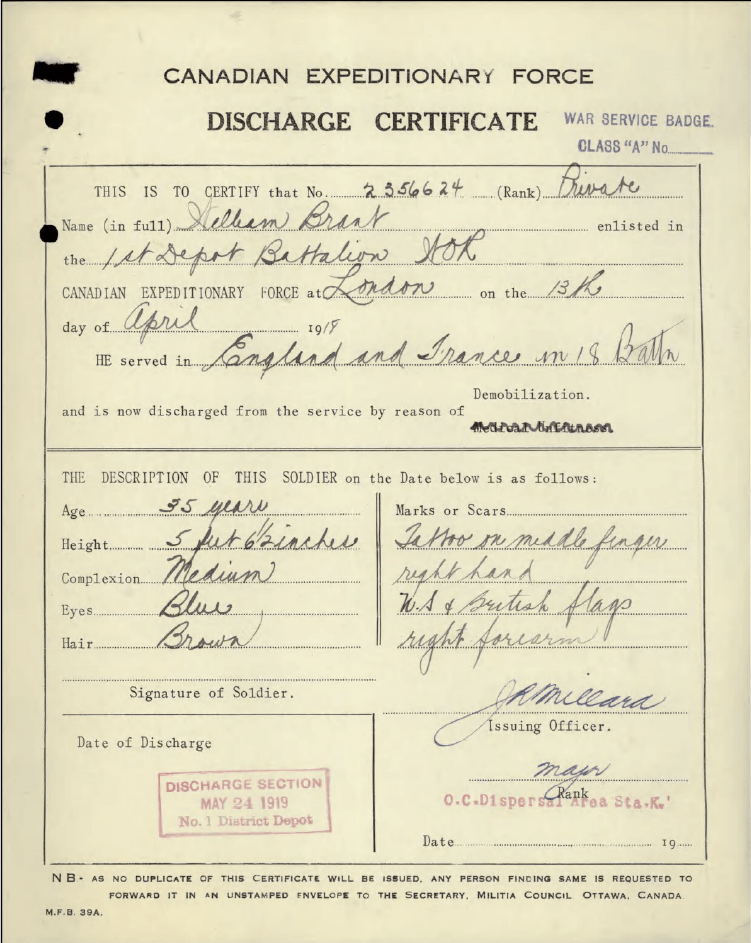 CANADIAN EXPEDITIONARY FORCE
DISCHARGE CERTIFICATE
WAR SERVICE BADGE.
CLASS "A" No
THIS IS TO CERTIFY that No. 2356624 (Rank) Private
Name (in full) William Brant enlisted in
the 1st Depot Battalion WOR
CANADIAN EXPEDITIONARY FORCE at London on the 13th
day of April 1918
HE served in England and France in 18 Battn
Demobilization.
and is now discharged from the service by reason of
Medical Unfitness.
THE DESCRIPTION OF THIS SOLDIER on the Date below is as follows:
Age 35 years
Height 5 feet 6½ inches
Complexion Medium
Eyes Blue
Hair Brown
Marks or Scars
Tattoo on middle finger
right hand
U.S & British flags
right forearm
Signature of Soldier.
Date of Discharge
DISCHARGE SECTION
MAY 24 1919
No. 1 District Depot
Millard
Issuing Officer.
Major
Rank
O.C. Dispersal Area Sta. K.'
Date 19
NB - AS NO DUPLICATE OF THIS CERTIFICATE WILL BE ISSUED, ANY PERSON FINDING SAME IS REQUESTED TO
FORWARD IT IN AN UNSTAMPED ENVELOPE TO THE SECRETARY, MILITIA COUNCIL OTTAWA, CANADA.
M.F.B. 39A.